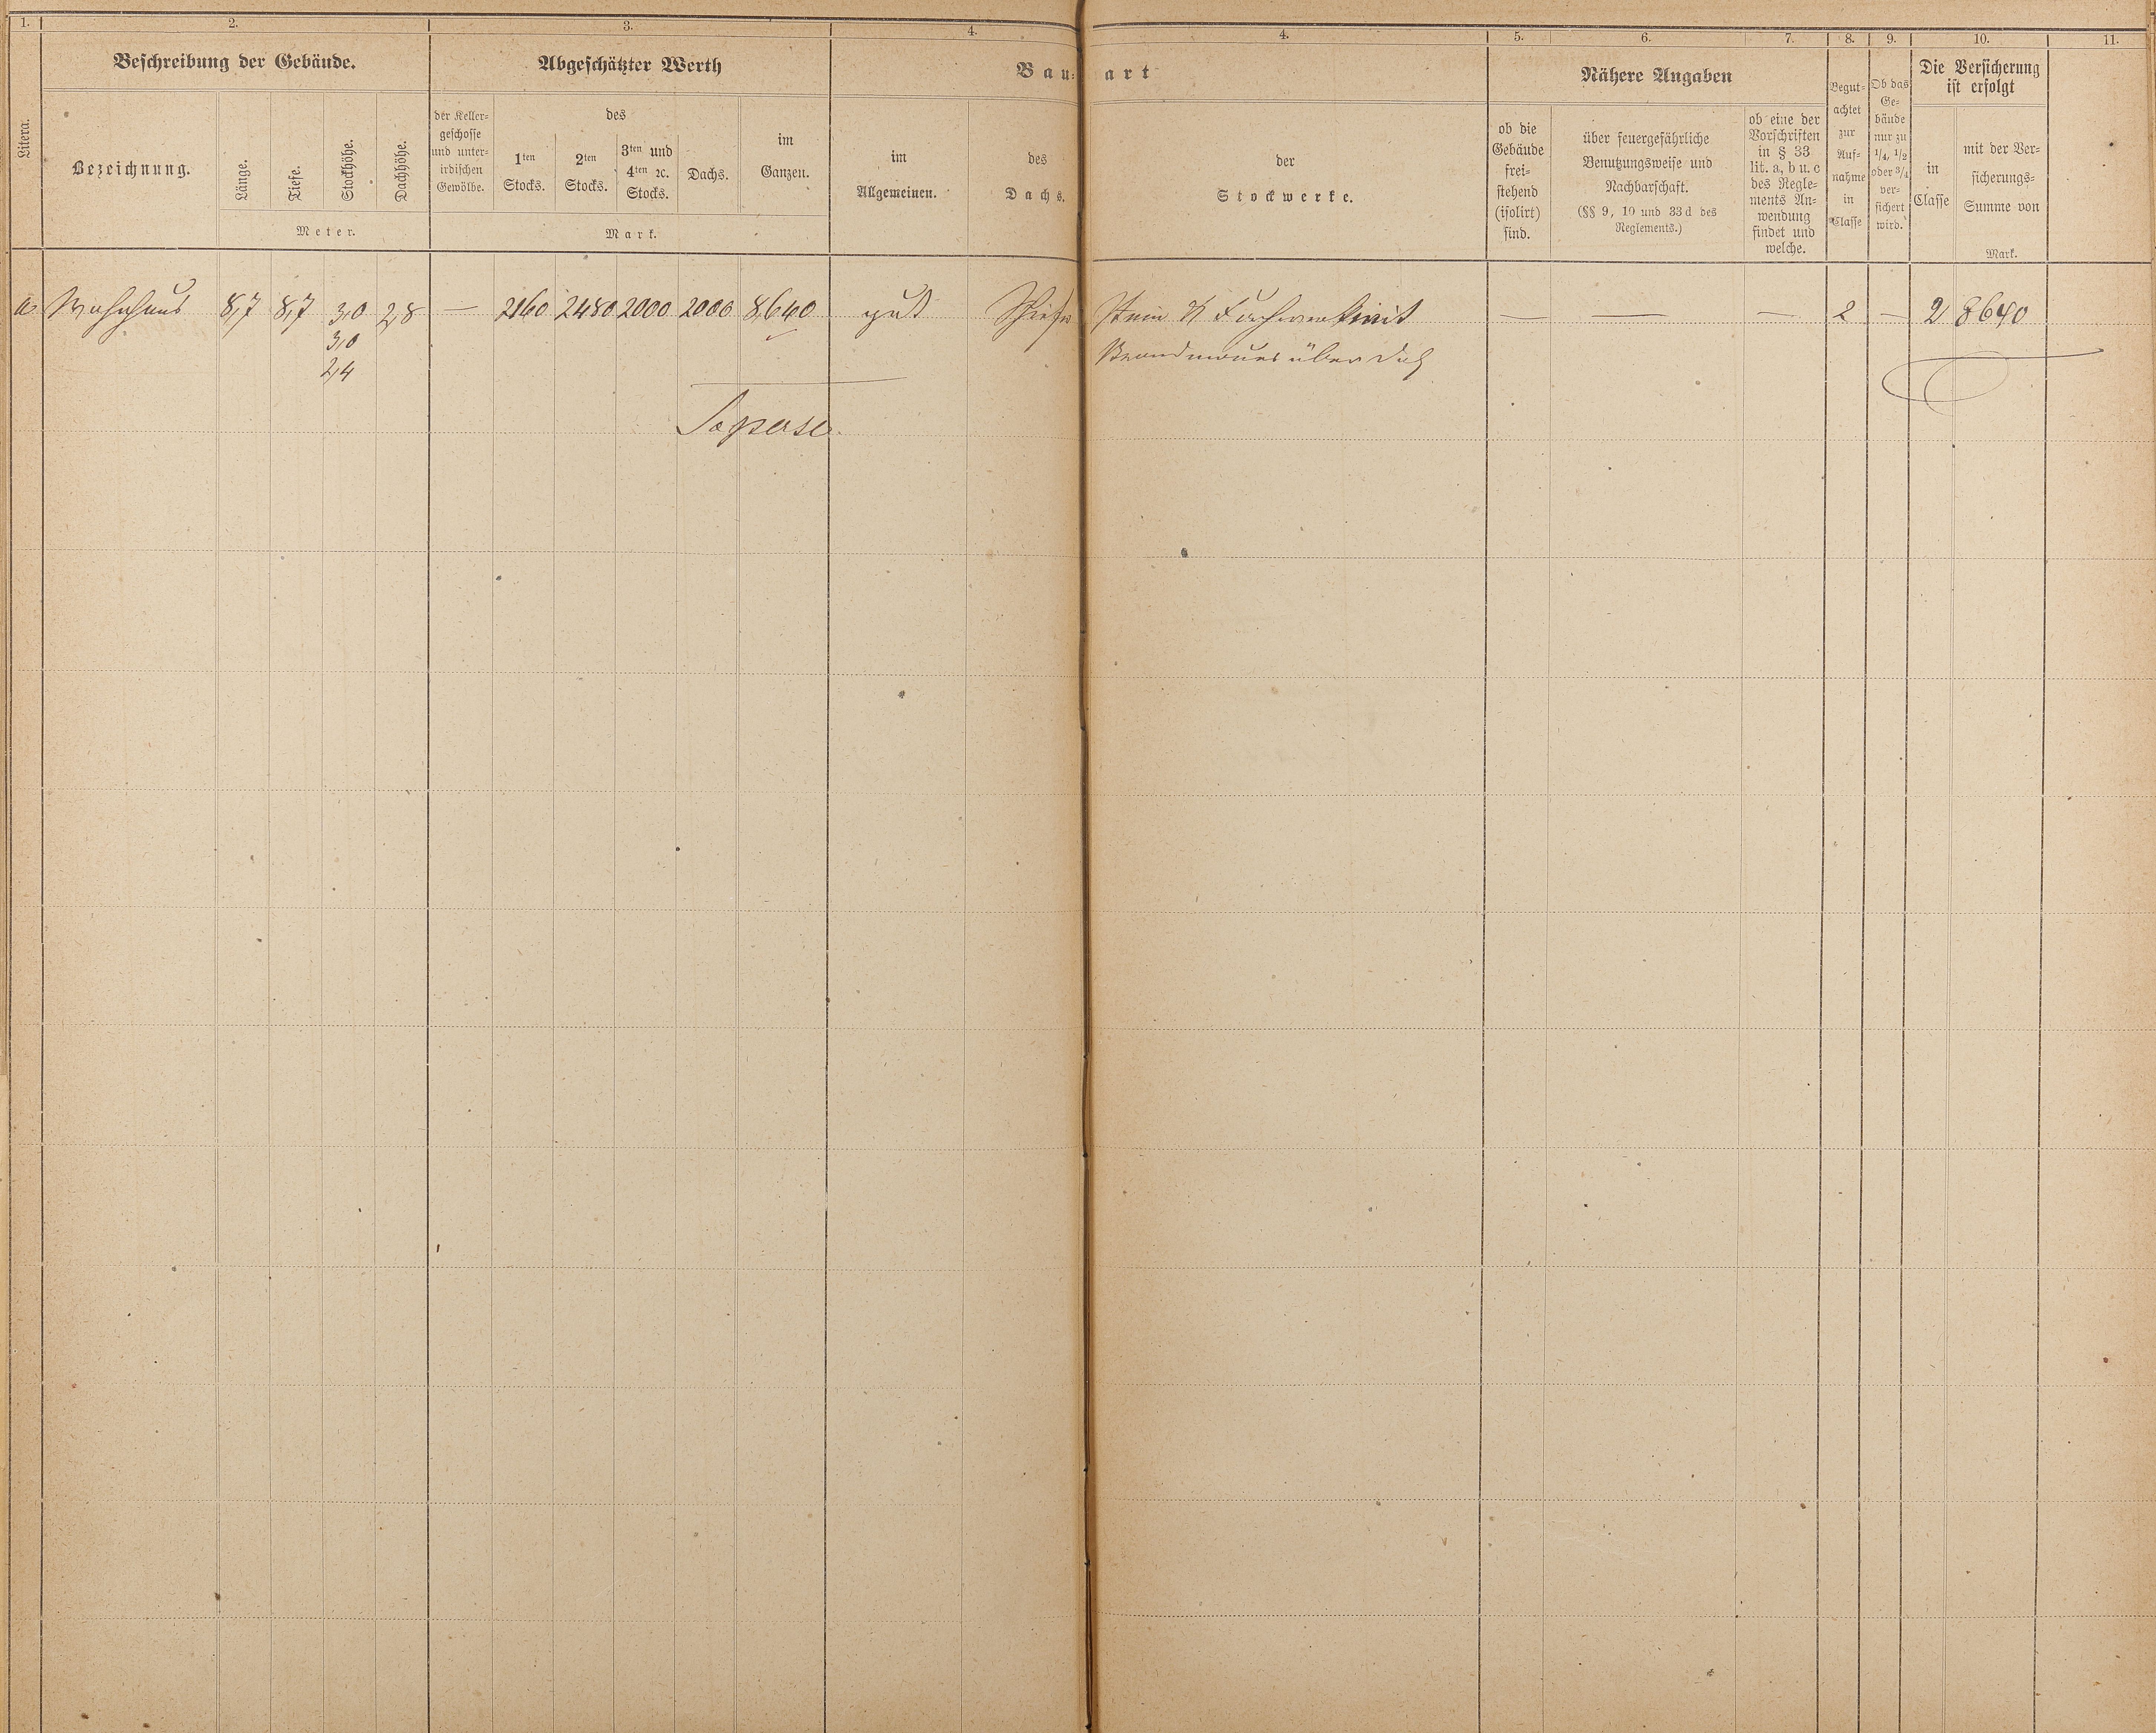 1. 2. 3. 4. 4. 5. 6. 7. 8. 9. 10. 11.
Litera.
Beschreibung der Gebäude.
Bezeichnung.
Länge.
Tiefe.
Stockhöhe.
Dachhöhe.
Meter.
Abgeschätzter Werth
der Keller-
geschosse
und unter-
irdischen
Gewölbe.
des
1ten
Stocks.
2ten
Stocks.
3ten und
4ten ꝛc.
Stocks.
Dachs.
im
Ganzen.
Mark.
Bau-art
im
Allgemeinen.
des
Dachs.
der
Stockwerke.
Nähere Angaben
ob die
Gebäude
frei-
stehend
(isolirt)
sind.
über feuergefährliche
Benutzungsweise und
Nachbarschaft.
(§§ 9, 10 und 33 d des
Reglements.)
ob eine der
Vorschriften
in § 33
lit. a, b u. c
des Regle-
ments An-
wendung
findet und
welche.
Begut-
achtet
zur
Auf-
nahme
in
Classe
Ob das
Ge-
bäude
nur zu
1/4, 1/2
oder 3/4
ver-
sichert
wird.
Die Versicherung
ist erfolgt
in
Classe
mit der Ver-
sicherungs-
Summe von
Mark.
a Wohnhaus 8,7 8,7 3,0 2,8 — 2160 2480 2000 2000 8640 gut Schiefer Stein & Fachwerk mit — — — 2 — 2 8640
3,0 Brandmauer über Dach
2,4